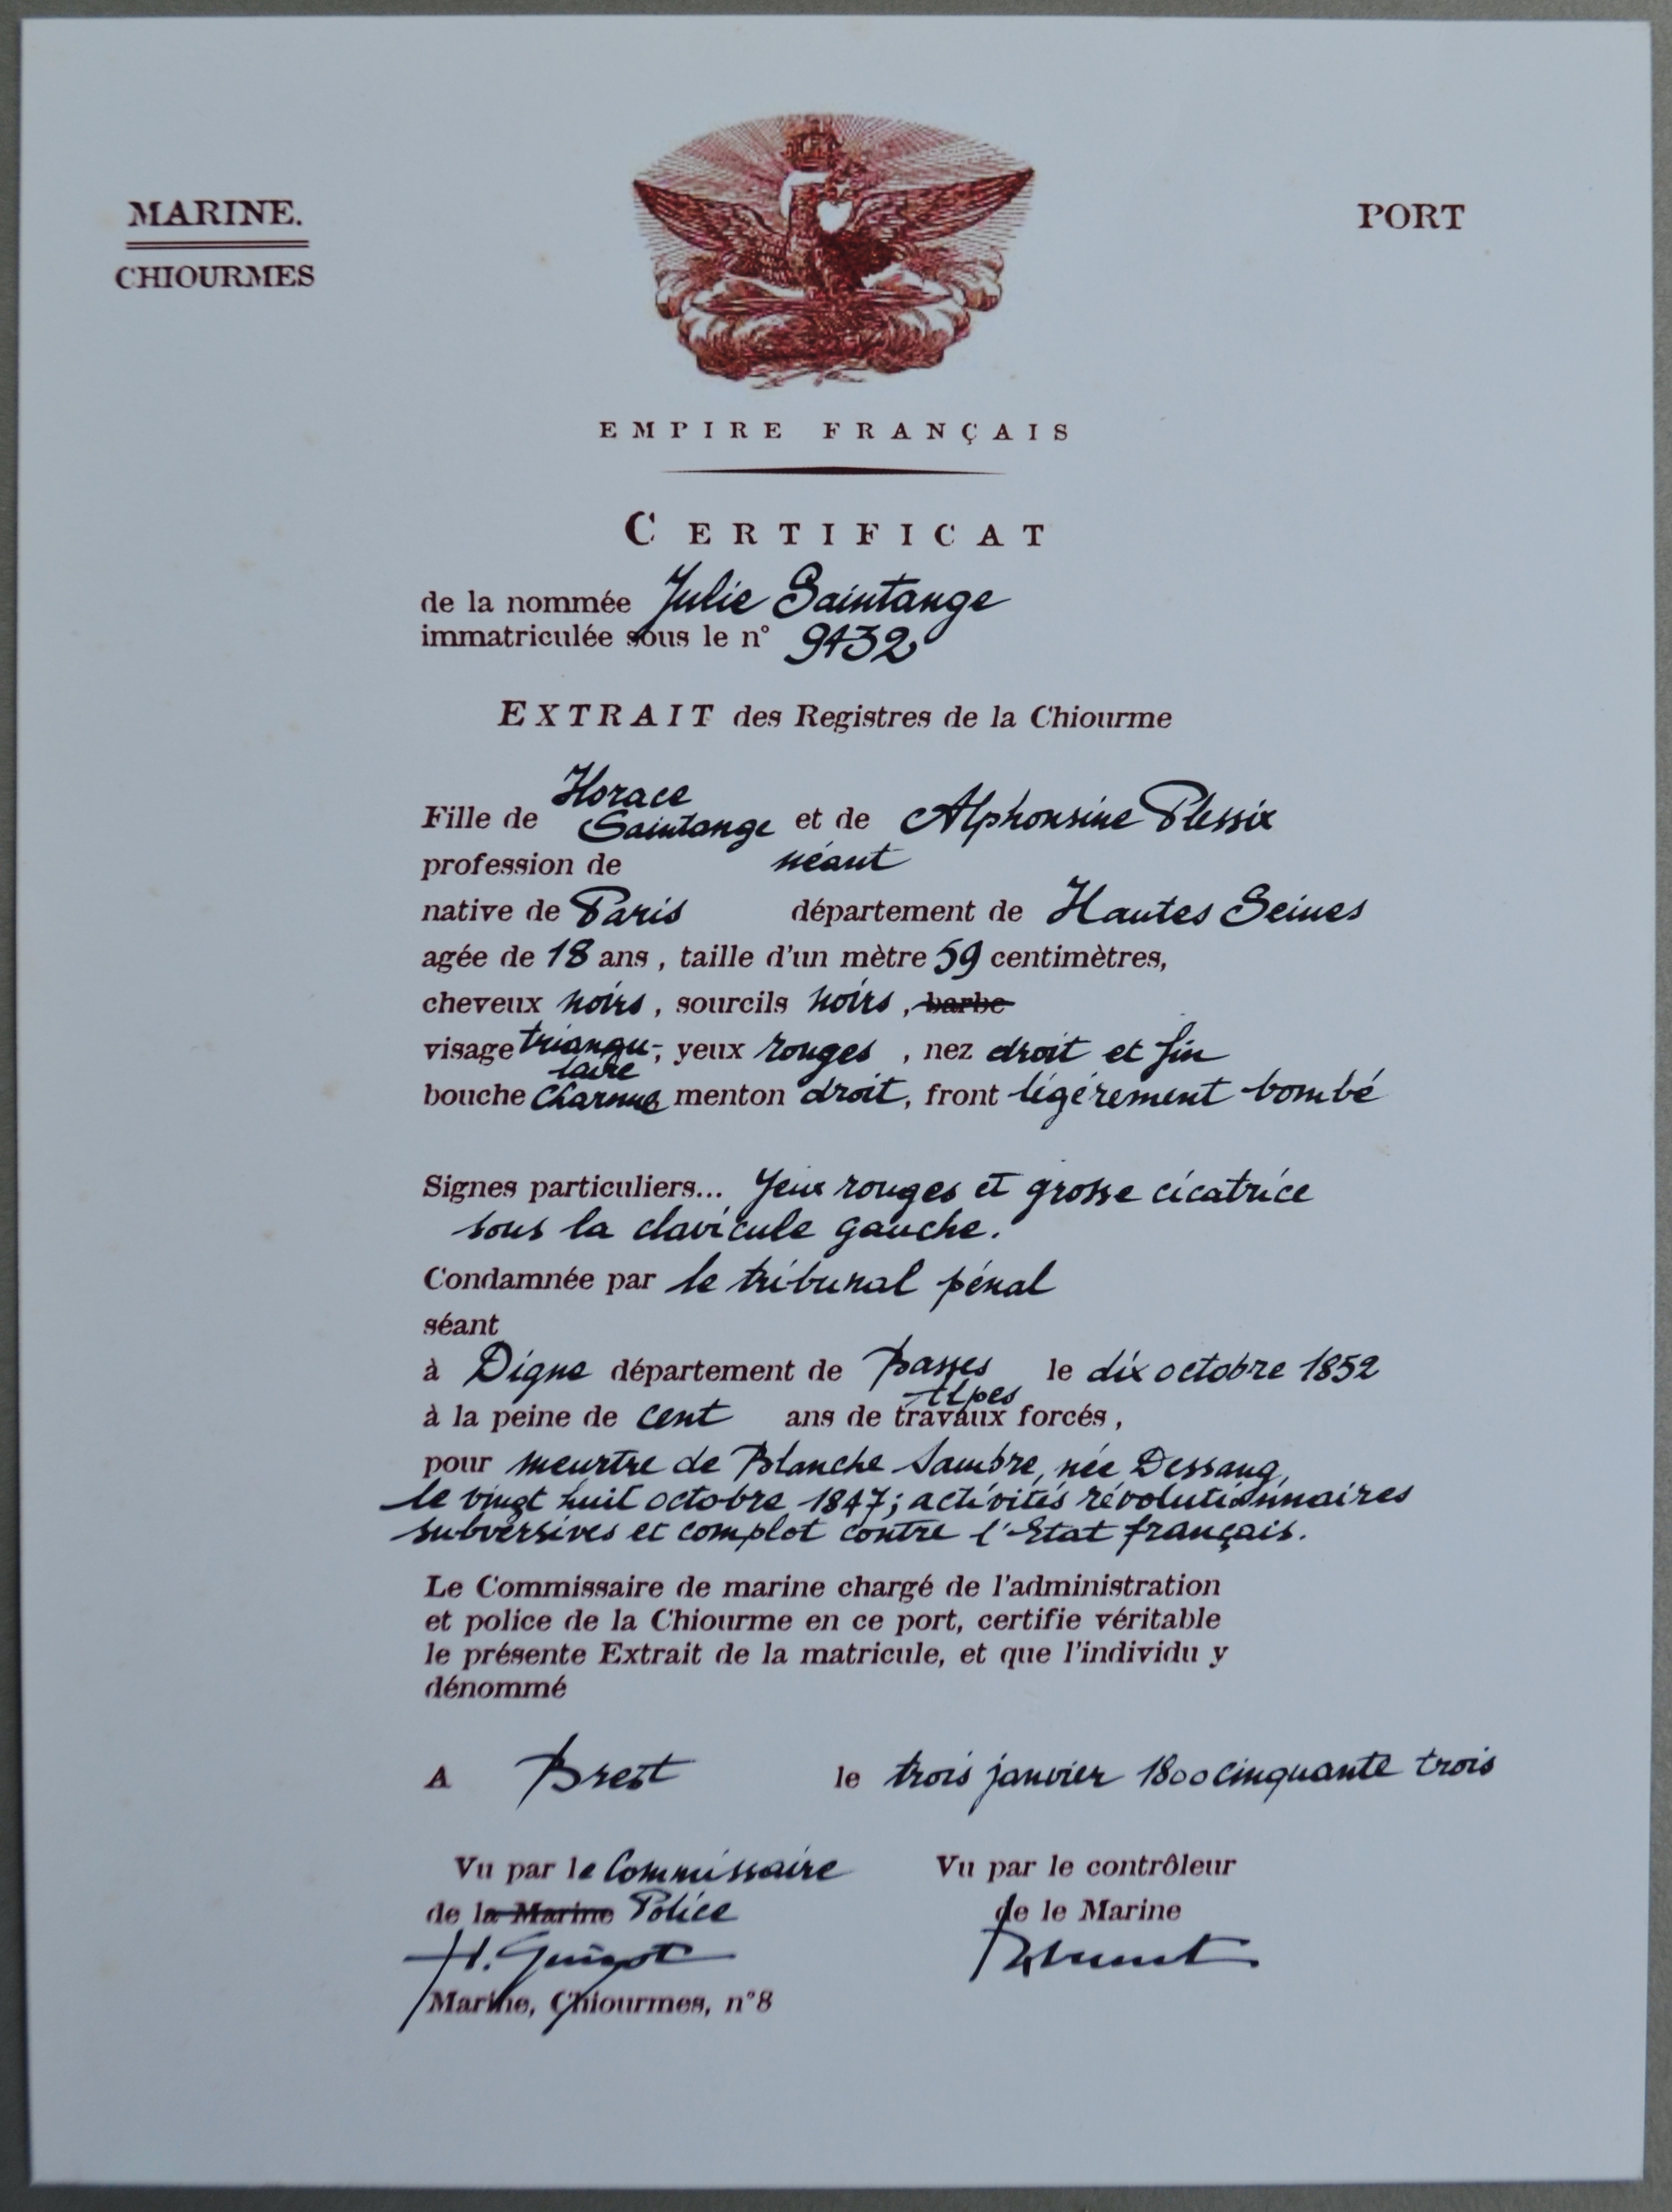 MARINE.
CHIOURMES
PORT
EMPIRE FRANÇAIS
CERTIFICAT
de la nommée Julie Saintange
immatriculée sous le n° 9432
EXTRAIT des Registres de la Chiourme
Fille de Horace Saintange et de Alphonsine Plessix
profession de néant
native de Paris département de Hautes Seines
agée de 18 ans, taille d'un mètre 59 centimètres,
cheveux noirs, sourcils noirs, barbe
visage triangu-laire, yeux rouges, nez droit et fin
bouche charnue menton droit, front légérement bombé
Signes particuliers... Yeux rouges et grosse cicatrice
sous la clavicule gauche.
Condamnée par le tribunal pénal
séant
à Digne département de Basses Alpes le dix octobre 1852
à la peine de cent ans de travaux forcés,
pour meurtre de Blanche Sambre, née Dessang,
le vingt huit octobre 1847; activités révolutionnaires
subversives et complot contre l'Etat français.
Le Commissaire de marine chargé de l'administration
et police de la Chiourme en ce port, certifie véritable
le présente Extrait de la matricule, et que l'individu y
dénommé
A Brest le trois janvier 1800 cinquante trois
Vu par le Commissaire
de la Marine Police
H. Guizot
Marine, Chiourmes, n°8
Vu par le contrôleur
de le Marine